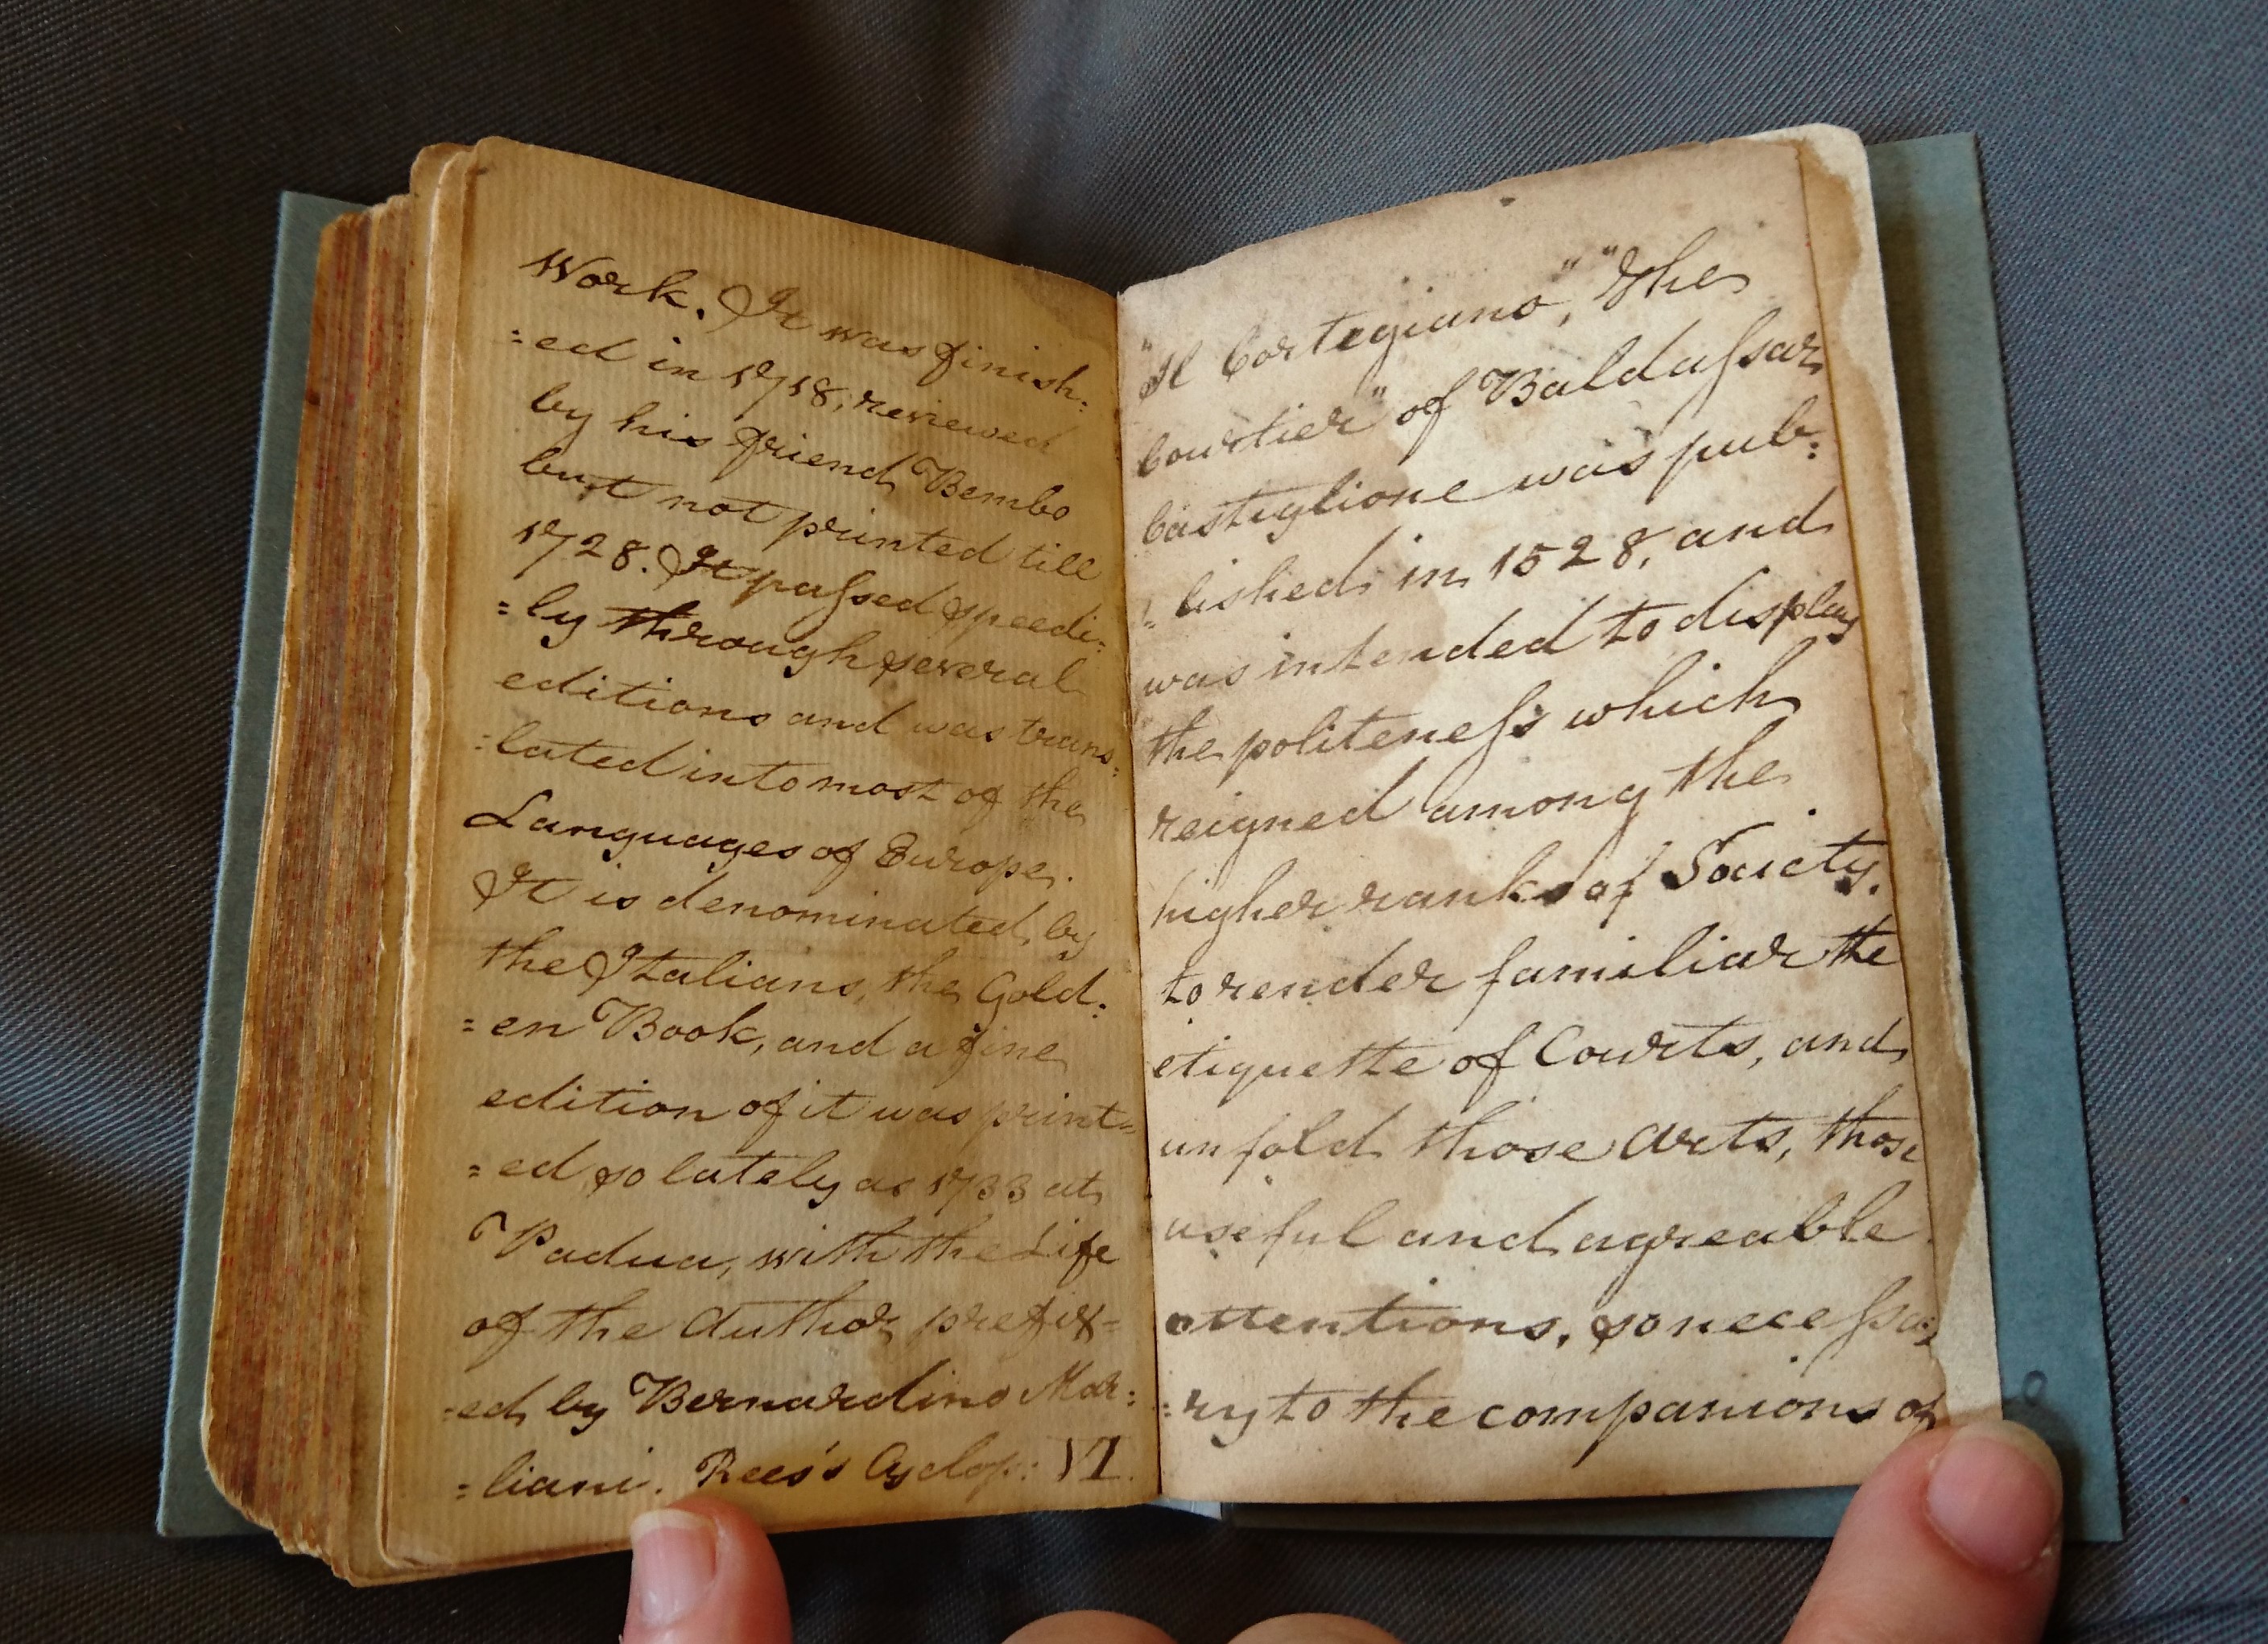 Work. It was finish:
=ed in 1718, reviewed
by his friend Bembo
but not printed till
1728. It paſsed speedi:
=ly through several
editions and was trans:
:lated into most of the
Languages of Europe.
It is denominated by
the Italians, the Gold:
=en Book, and a fine
edition of it was print=
=ed so lately as 1733 at
Padua, with the Life
of the Author prefix=
=ed by Bernardino Mar:
=liani. Rees's Cyclop: VI.
"Il Cortegiano", "The
Courtier" of Baldaſsar
Castiglione was pub:
:lished in 1528, and
was intended to display
the politeneſs which
reigned among the
higher ranks of Society.
to render familiar the
etiquette of Courts, and
unfold those Arts, those
useful and agreable
attentions, so neceſsa:
:ry to the companions of